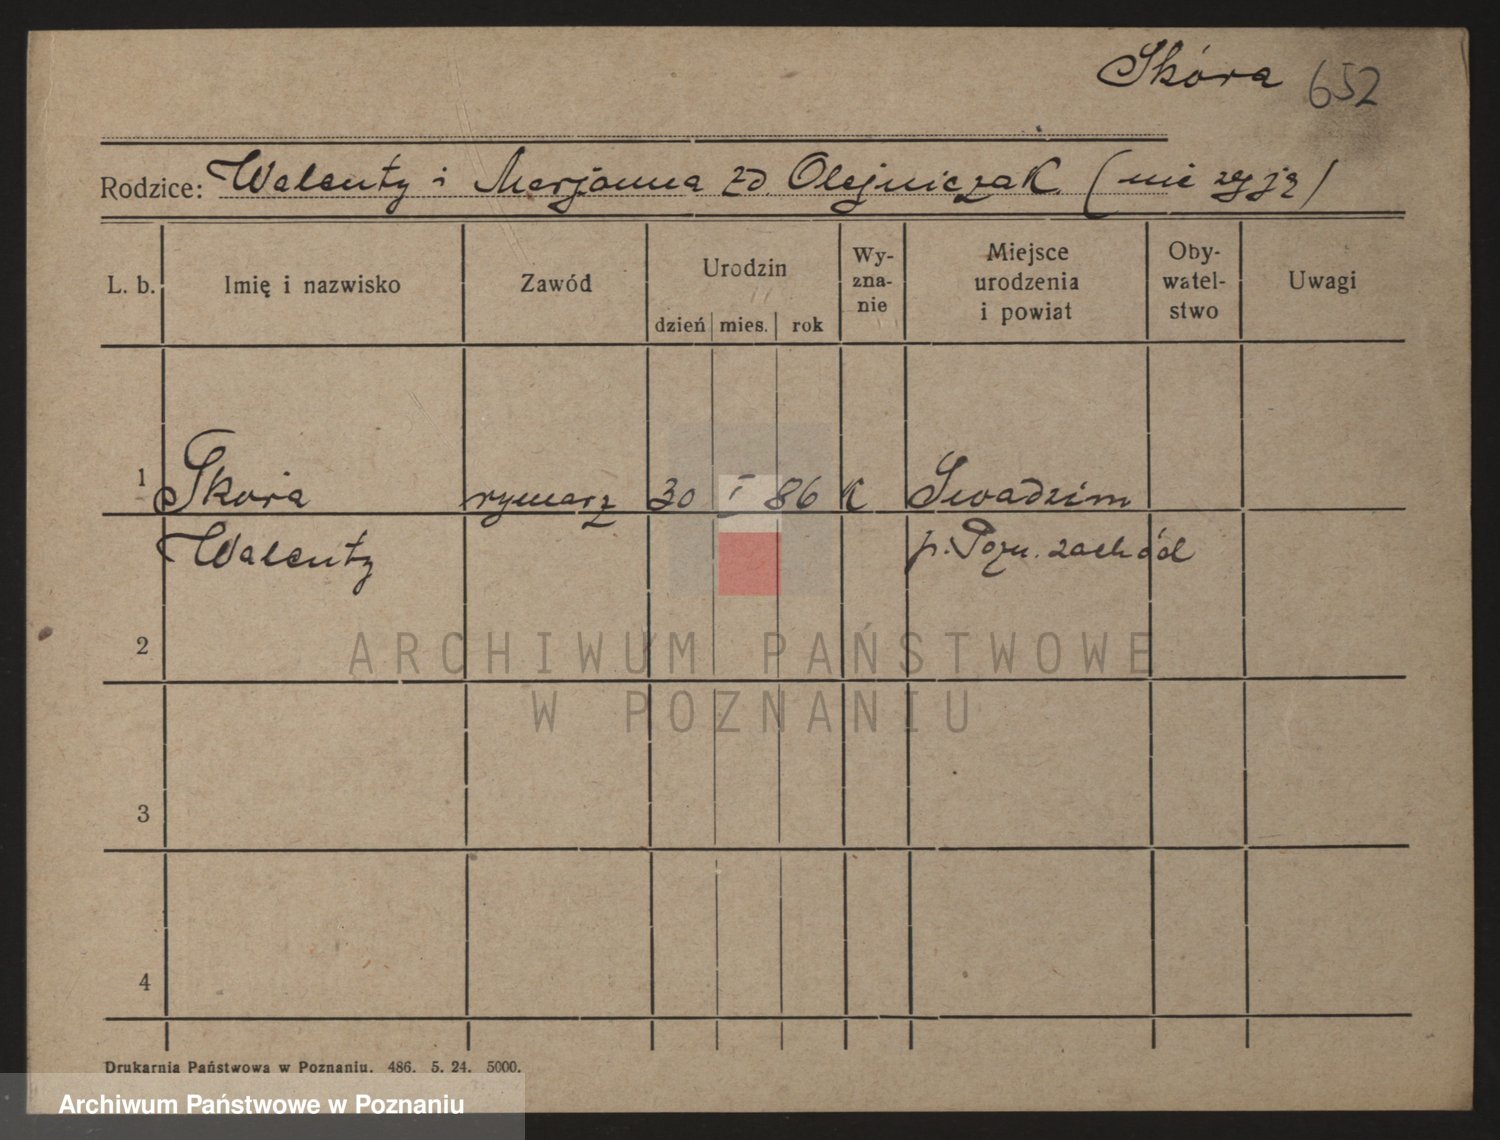 Skóra 652
Rodzice: Walenty i Marjanna zd. Olejniczak (nie żyją)
L. b. Imię i nazwisko Zawód Urodzin dzień mies. rok Wy-zna-nie Miejsce urodzenia i powiat Oby-watel-stwo Uwagi
1 Skóra rymarz 30 I 86 K Swadzim
Walenty p. Pozn. zachód
2
3
4
ARCHIWUM PAŃSTWOWE
W POZNANIU
Drukarnia Państwowa w Poznaniu. 486. 5. 24. 5000.
Archiwum Państwowe w Poznaniu